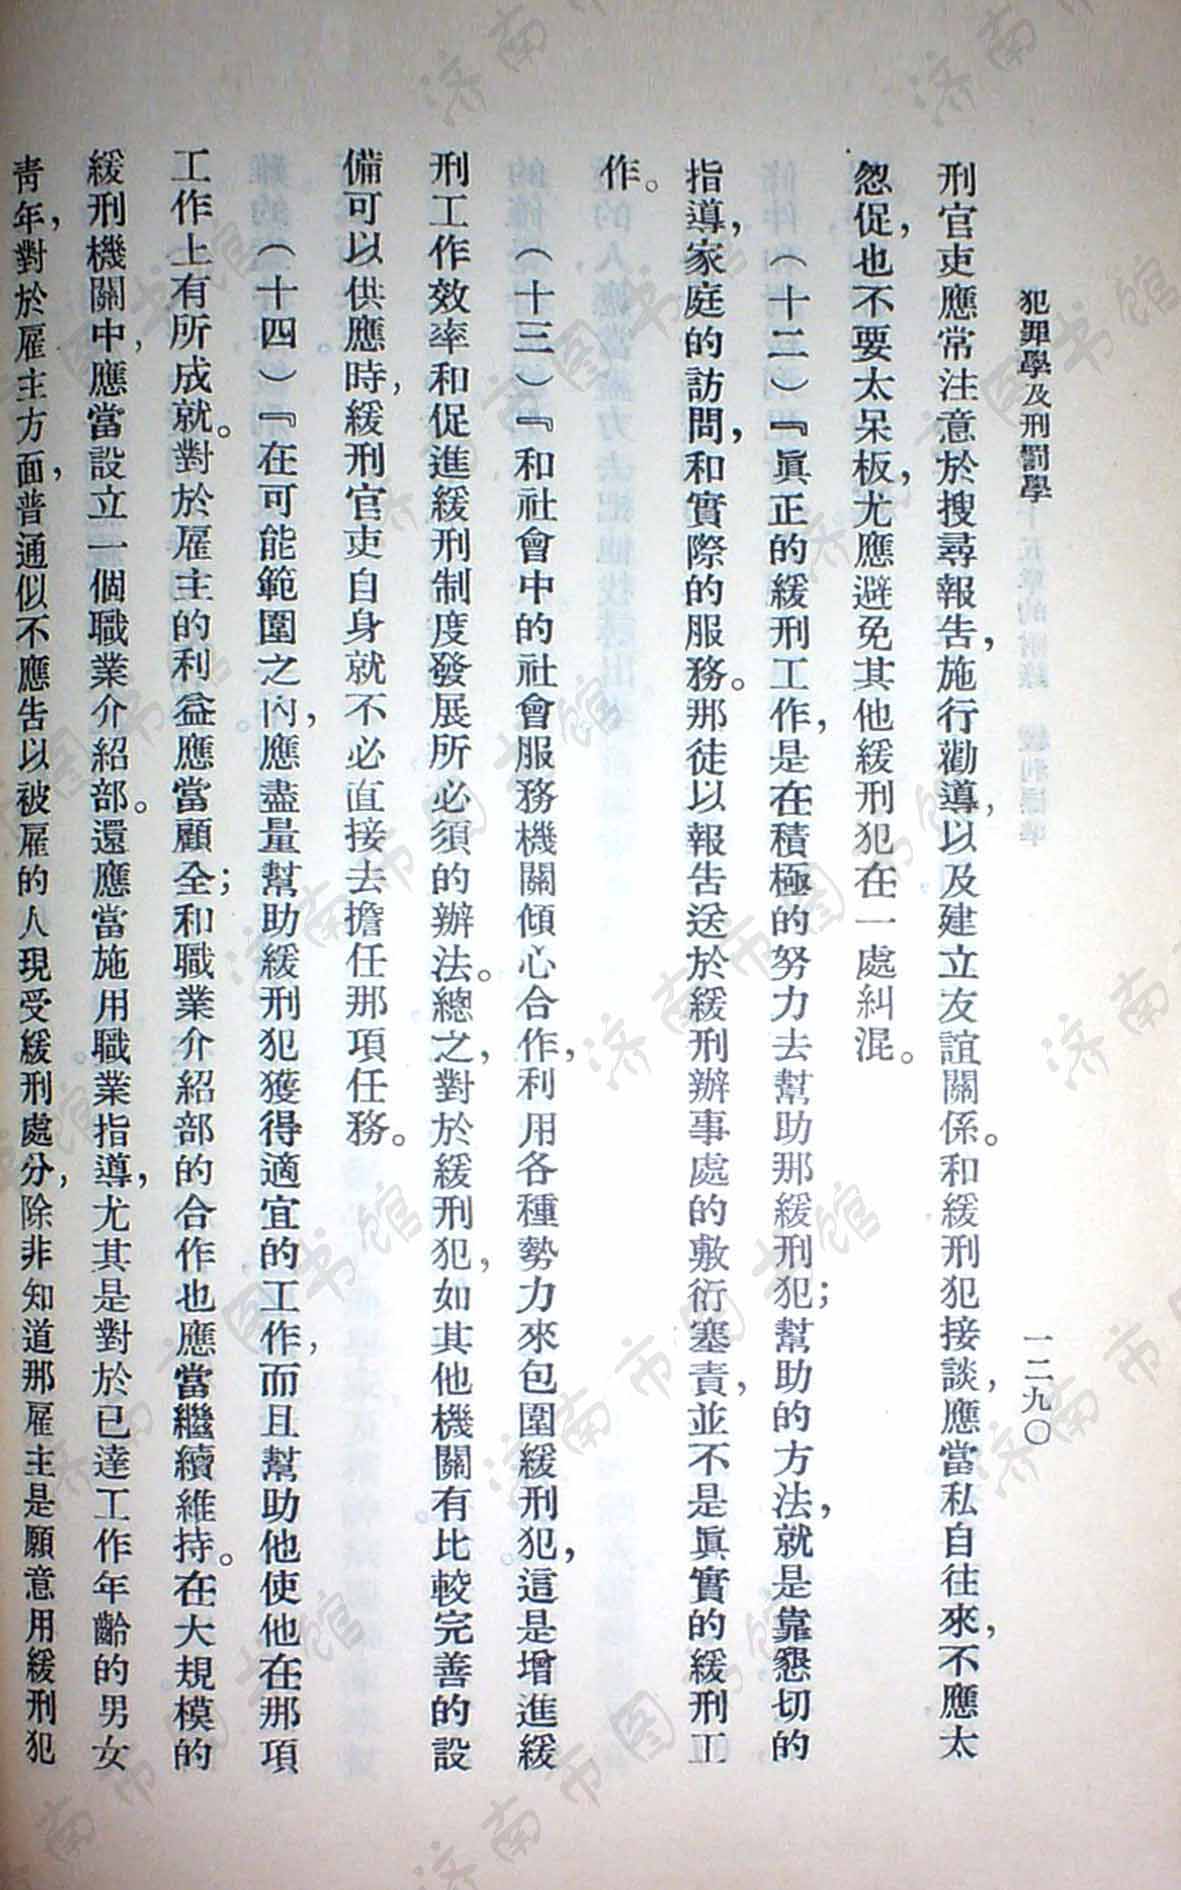 犯罪學及刑罰學
一二九〇
刑官吏應常注意於搜尋報告，施行勸導，以及建立友誼關係。和緩刑犯接談，應當私自往來，不應太
怱促，也不要太呆板，尤應避免其他緩刑犯在一處糾混。
（十二）『眞正的緩刑工作，是在積極的努力去幫助那緩刑犯；幫助的方法，就是靠懇切的
指導，家庭的訪問，和實際的服務。那徒以報告送於緩刑辦事處的敷衍塞責，並不是眞實的緩刑工
作。
（十三）『和社會中的社會服務機關傾心合作，利用各種勢力來包圍緩刑犯，這是增進緩
刑工作效率和促進緩刑制度發展所必須的辦法。總之，對於緩刑犯，如其他機關有比較完善的設
備可以供應時，緩刑官吏自身就不必直接去擔任那項任務。
（十四）『在可能範圍之內，應盡量幫助緩刑犯獲得適宜的工作，而且幫助他使他在那項
工作上有所成就。對於雇主的利益應當顧全；和職業介紹部的合作也應當繼續維持。在大規模的
緩刑機關中，應當設立一個職業介紹部。還應當施用職業指導，尤其是對於已達工作年齡的男女
靑年，對於雇主方面，普通似不應告以被雇的人現受緩刑處分，除非知道那雇主是願意用緩刑犯
济南市图书馆